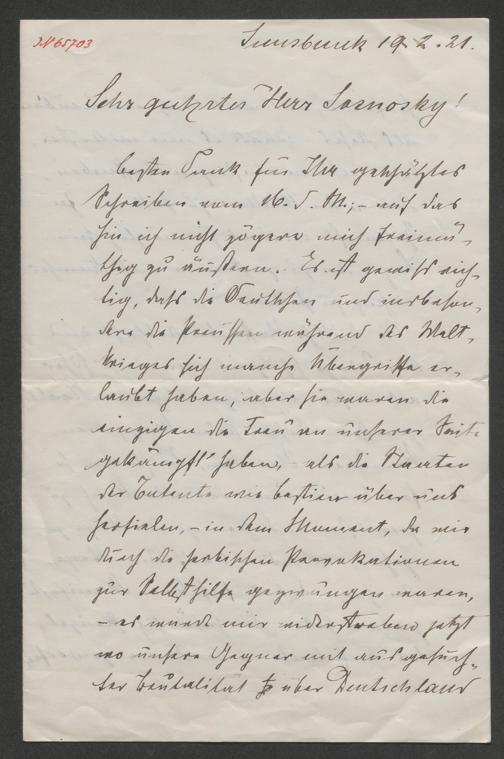 IN 65703
Innsbruck 19.2.21.
Sehr geehrter Herr Sosnosky!
besten Dank für Ihr geschätztes
Schreiben vom 16. d. M.; – auf das
hin ich nicht zögere mich freimü-
thig zu äußern. Es ist gewiss rich-
tig, daß die Deutschen und insbeson-
dere die Preussen während des Welt-
krieges sich manche Übergriffe er-
laubt haben, aber sie waren die
einzigen die Treu an unserer Seite
gekämpft haben, – als die Staaten
der Entente wie bestien über uns
herfielen, – in dem Moment, da wir
durch die serbischen Provokationen
zur Selbsthilfe gezwungen waren,
– es würde mir widerstreben jetzt
wo unsere Gegner mit ausgesuch-
ter Brutalität über Deutschland